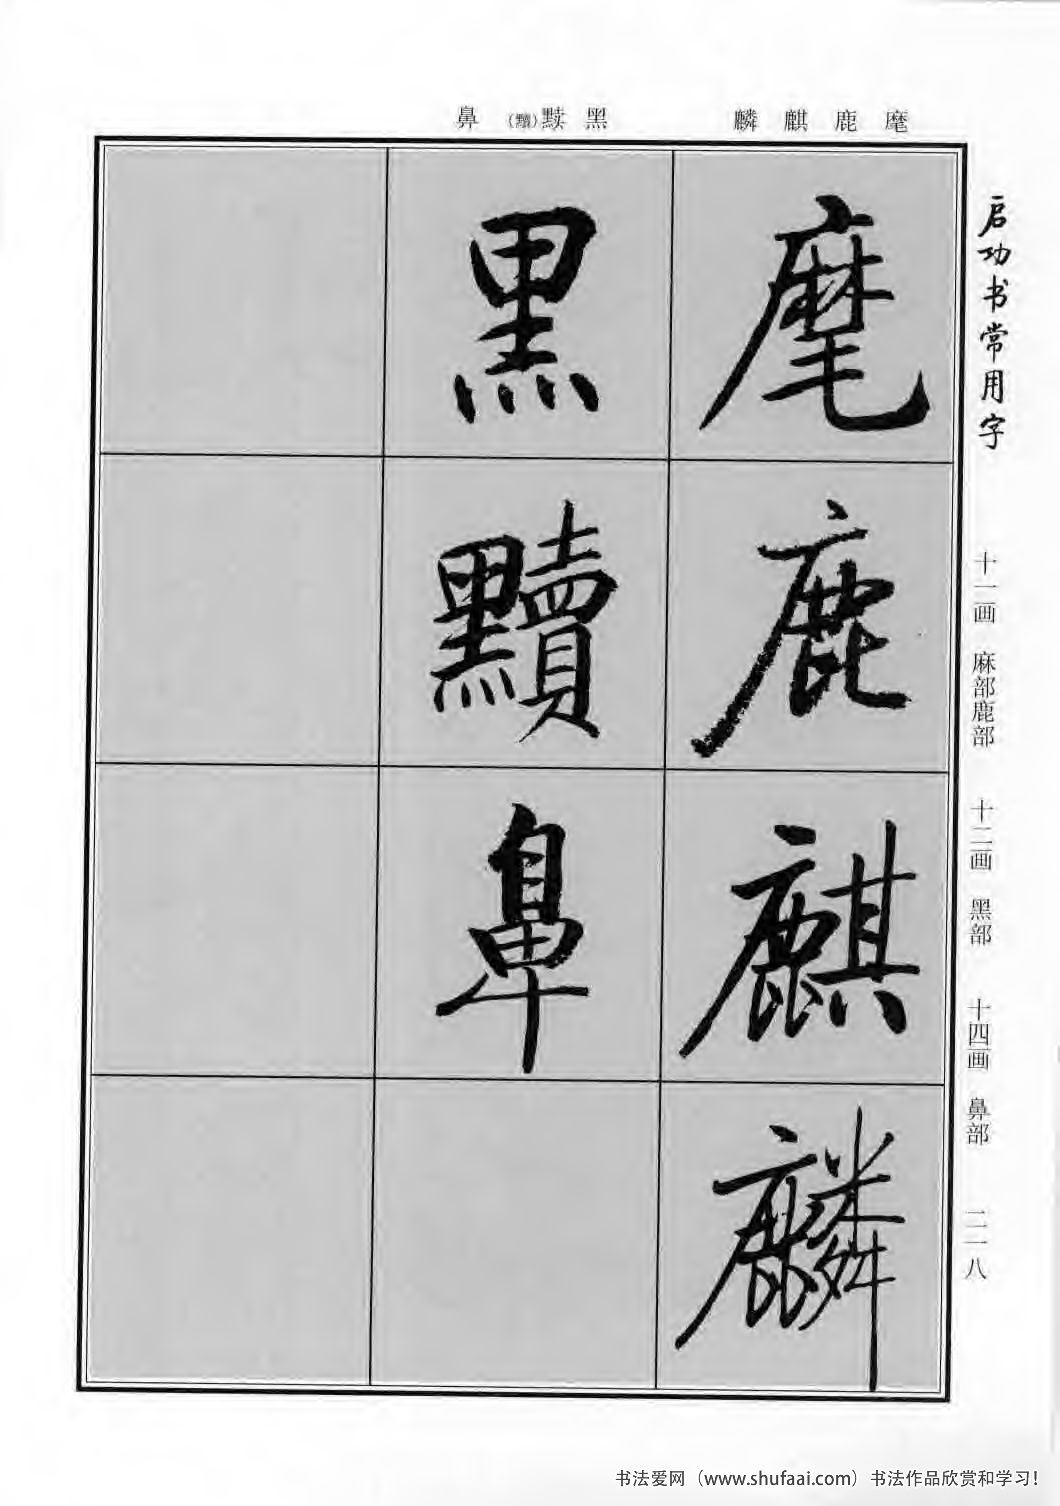 麾 鹿 麒 麟
黑 黩(黷) 鼻
麾
鹿
麒
麟
黑
黷
鼻
启功书常用字
十一画 麻部鹿部 十二画 黑部 十四画 鼻部
书法爱网（www.shufaai.com）书法作品欣赏和学习！